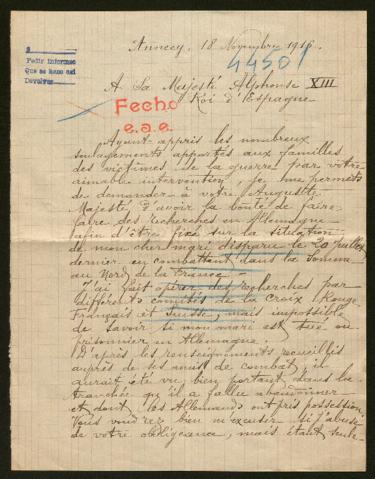 Annecy, 18 Novembre 1916.
44501
Pedir informes
Que se hane asi
Devolver
A Sa Majesté Alphonse XIII
Roi d'Espagne
Fecho
e.a.e.
Ayant appris les nombreux
soulagements apportés aux familles
des victimes de la guerre par votre
aimable intervention, je me permets
de demander à votre Auguste
Majesté d'avoir la bonté de faire
faire des recherches en Allemagne
afin d'être fixée sur la situation
de mon cher mari disparu le 20 juillet
dernier en combattant dans la Somme
au Nord de la France —
J'ai fait opérer des recherches par
différents comités de la Croix Rouge
Français et Suisse, mais impossible
de savoir si mon mari est tué ou
prisonnier en Allemagne.
D'après les renseignements recueillis
auprès de ses amis de combat, il
aurait été vu bien portant dans la
tranchée qu'il a fallu abandonner
et dont les Allemands ont pris possession.
Vous voudrez bien m'excuser si j'abuse
de votre obligeance, mais étant seule